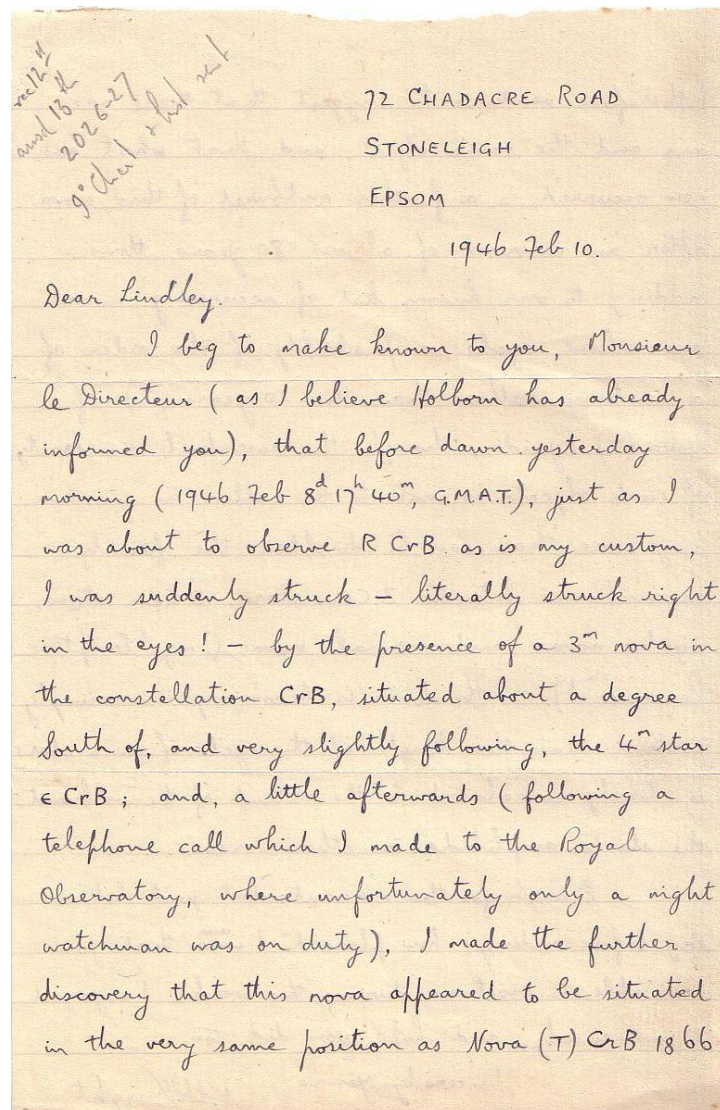 rec 12th
ansd 13th
2026-27
9° Chart + list sent
72 CHADACRE ROAD
STONELEIGH
EPSOM
1946 Feb 10.
Dear Lindley.
I beg to make known to you, Monsieur
le Directeur (as I believe Holborn has already
informed you), that before dawn yesterday
morning (1946 Feb 8d 17h 40m, G.M.A.T.), just as I
was about to observe R CrB as is my custom,
I was suddenly struck – literally struck right
in the eyes! – by the presence of a 3m nova in
the constellation CrB, situated about a degree
South of, and very slightly following, the 4m star
ε CrB; and, a little afterwards (following a
telephone call which I made to the Royal
Observatory, where unfortunately only a night
watchman was on duty), I made the further
discovery that this nova appeared to be situated
in the very same position as Nova (T) CrB 1866